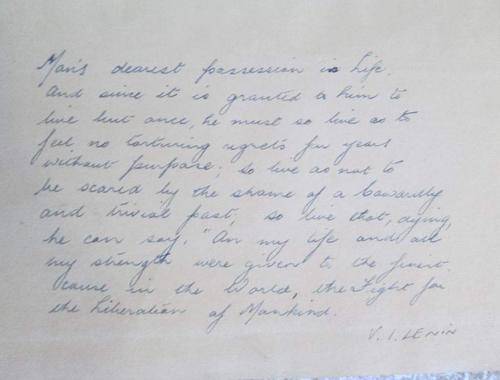 Man's dearest possession is Life.
And since it is granted to him to
live but once, he must so live as to
feel no torturing regrets for years
without purpose; so live as not to
be scared by the shame of a Cowardly
and trivial past; so live that, dying,
he can say, "All my life and all
my strength were given to the finest
cause in the World, the Fight for
the Liberation of Mankind.
V. I. LENIN